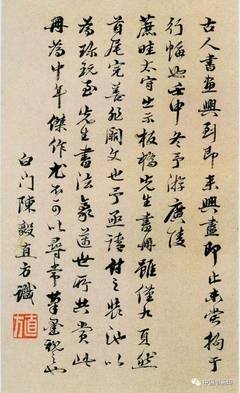 古人書畫興到即来興盡即止未嘗拘于
行幅也壬申冬予游廣陵
蔗畦太守出示板橋先生畫冊雖僅九頁然
首尾完善非闕文也予亟請付之裝池以
為珍玩至先生書法蒼遒世所共賞此
冊為中年傑作尤不可以尋常筆墨視之也
白门陳毅直方識